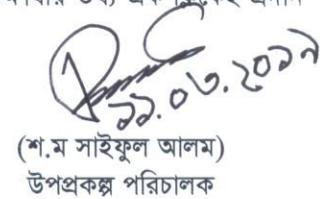 ১১.০৩.২০১৯
(শ.ম সাইফুল আলম)
উপপ্রকল্প পরিচালক